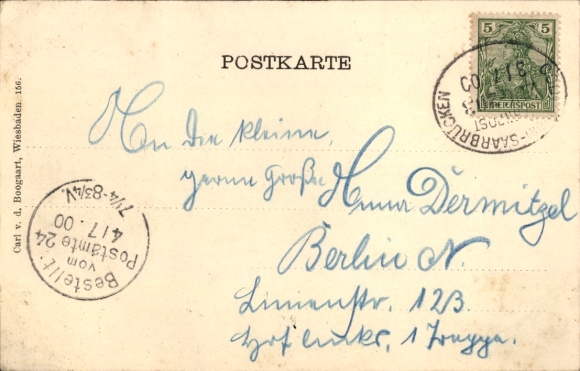 POSTKARTE
5 5
REICHSPOST
SAARBRÜCKEN
3 17 00
An die kleine,
gerne große
Anna Dermitzel
Berlin N.
Linienstr. 123.
Hof links, 1 Treppe.
Bestellt
vom
Postamte 24
4/7.00
7¼-8¾V.
Carl v. d. Boogaart, Wiesbaden 156.